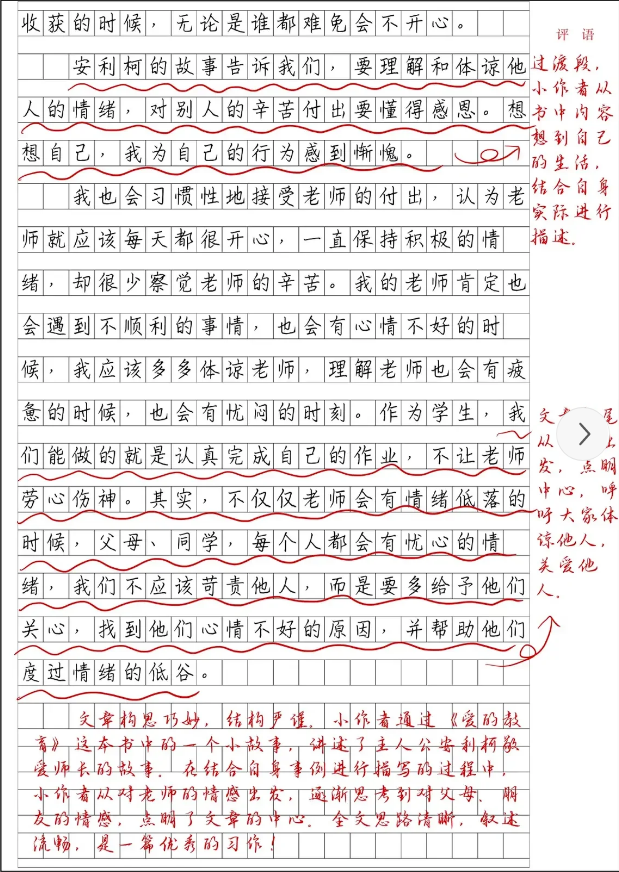 收获的时候，无论是谁都难免会不开心。
安利柯的故事告诉我们，要理解和体谅他
人的情绪，对别人的辛苦付出要懂得感恩。想
想自己，我为自己的行为感到惭愧。
我也会习惯性地接受老师的付出，认为老
师就应该每天都很开心，一直保持积极的情
绪，却很少察觉老师的辛苦。我的老师肯定也
会遇到不顺利的事情，也会有心情不好的时
候，我应该多多体谅老师，理解老师也会有疲
惫的时候，也会有忧闷的时刻。作为学生，我
们能做的就是认真完成自己的作业，不让老师
劳心伤神。其实，不仅仅老师会有情绪低落的
时候，父母、同学，每个人都会有忧心的情
绪，我们不应该苛责他人，而是要多给予他们
关心，找到他们心情不好的原因，并帮助他们
度过情绪的低谷。
文章构思巧妙，结构严谨，小作者通过《爱的教
育》这本书中的一个小故事，讲述了主人公安利柯敬
爱师长的故事．在结合自身事例进行描写的过程中，
小作者从对老师的情感出发，逐渐思考到对父母、朋
友的情感，点明了文章的中心．全文思路清晰，叙述
流畅，是一篇优秀的习作！
评语
过渡段，
小作者从
书中内容
想到自己
的生活，
结合自身
实际进行
描述．
文 尾
从
发，点明
中心，呼
吁大家体
谅他人，
关爱他
人．